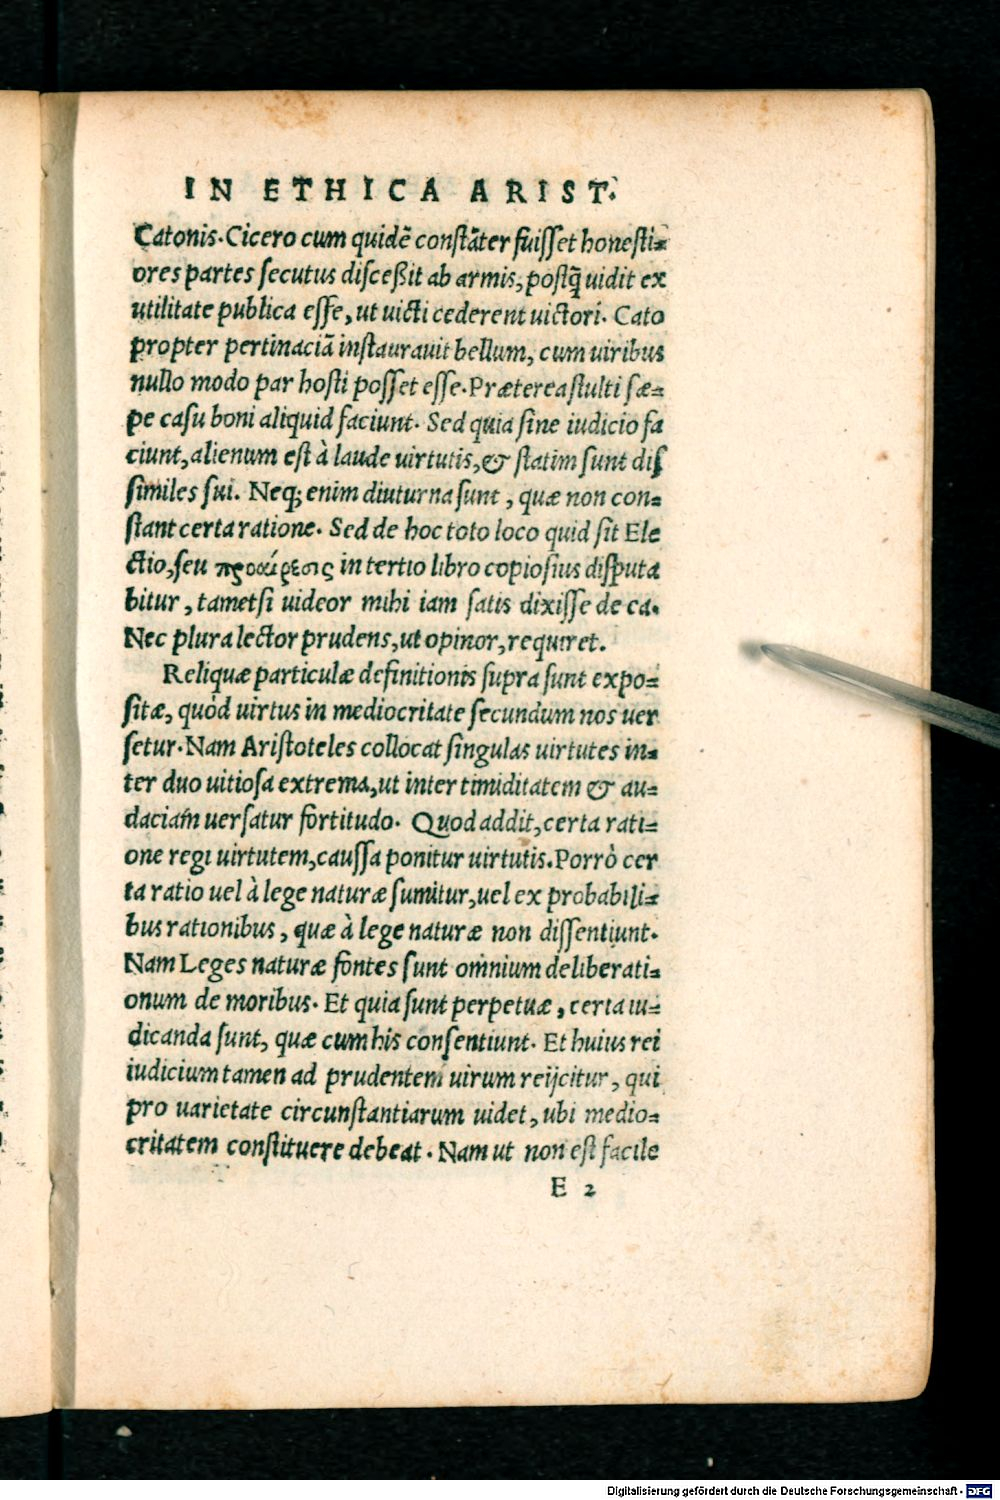 IN ETHICA ARIST.
Catonis. Cicero cum quidē constāter fuisset honesti=
ores partes secutus disceßit ab armis, postq̃ uidit ex
utilitate publica esse, ut uicti cederent uictori. Cato
propter pertinaciā instaurauit bellum, cum uiribus
nullo modo par hosti posset esse. Præterea stulti sæ=
pe casu boni aliquid faciunt. Sed quia sine iudicio fa
ciunt, alienum est à laude uirtutis, & statim sunt dis
similes sui. Neq; enim diuturna sunt, quæ non con=
stant certa ratione. Sed de hoc toto loco quid sit Ele
ctio, seu προαίρεσις in tertio libro copiosius disputa
bitur, tametsi uideor mihi iam satis dixisse de ea.
Nec plura lector prudens, ut opinor, requiret.
Reliquæ particulæ definitionis supra sunt expo=
sitæ, quòd uirtus in mediocritate secundum nos uer
setur. Nam Aristoteles collocat singulas uirtutes in=
ter duo uitiosa extrema, ut inter timiditatem & au=
daciam uersatur fortitudo. Quod addit, certa rati=
one regi uirtutem, caussa ponitur uirtutis. Porrò cer
ta ratio uel à lege naturæ sumitur, uel ex probabili=
bus rationibus, quæ à lege naturæ non dissentiunt.
Nam Leges naturæ fontes sunt omnium deliberati=
onum de moribus. Et quia sunt perpetuæ, certa iu=
dicanda sunt, quæ cum his consentiunt. Et huius rei
iudicium tamen ad prudentem uirum reijcitur, qui
pro uarietate circunstantiarum uidet, ubi medio=
critatem constituere debeat. Nam ut non est facile
E 2
Digitalisierung gefördert durch die Deutsche Forschungsgemeinschaft - DFG